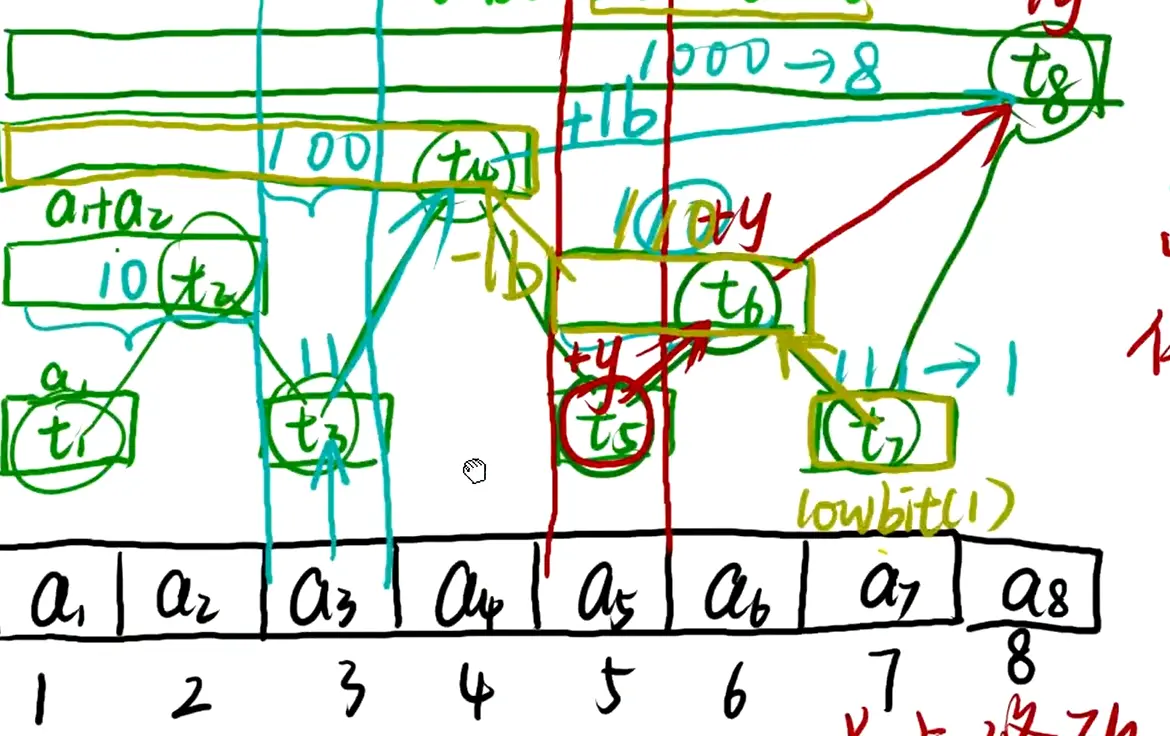 1000→8
t8
+lb
100
t4
a1+a2
110
+y
10
t2
-lb
t6
11
+y
111→1
a1
t1
t3
t5
t7
lowbit(1)
a1 a2 a3 a4 a5 a6 a7 a8
1 2 3 4 5 6 7 8